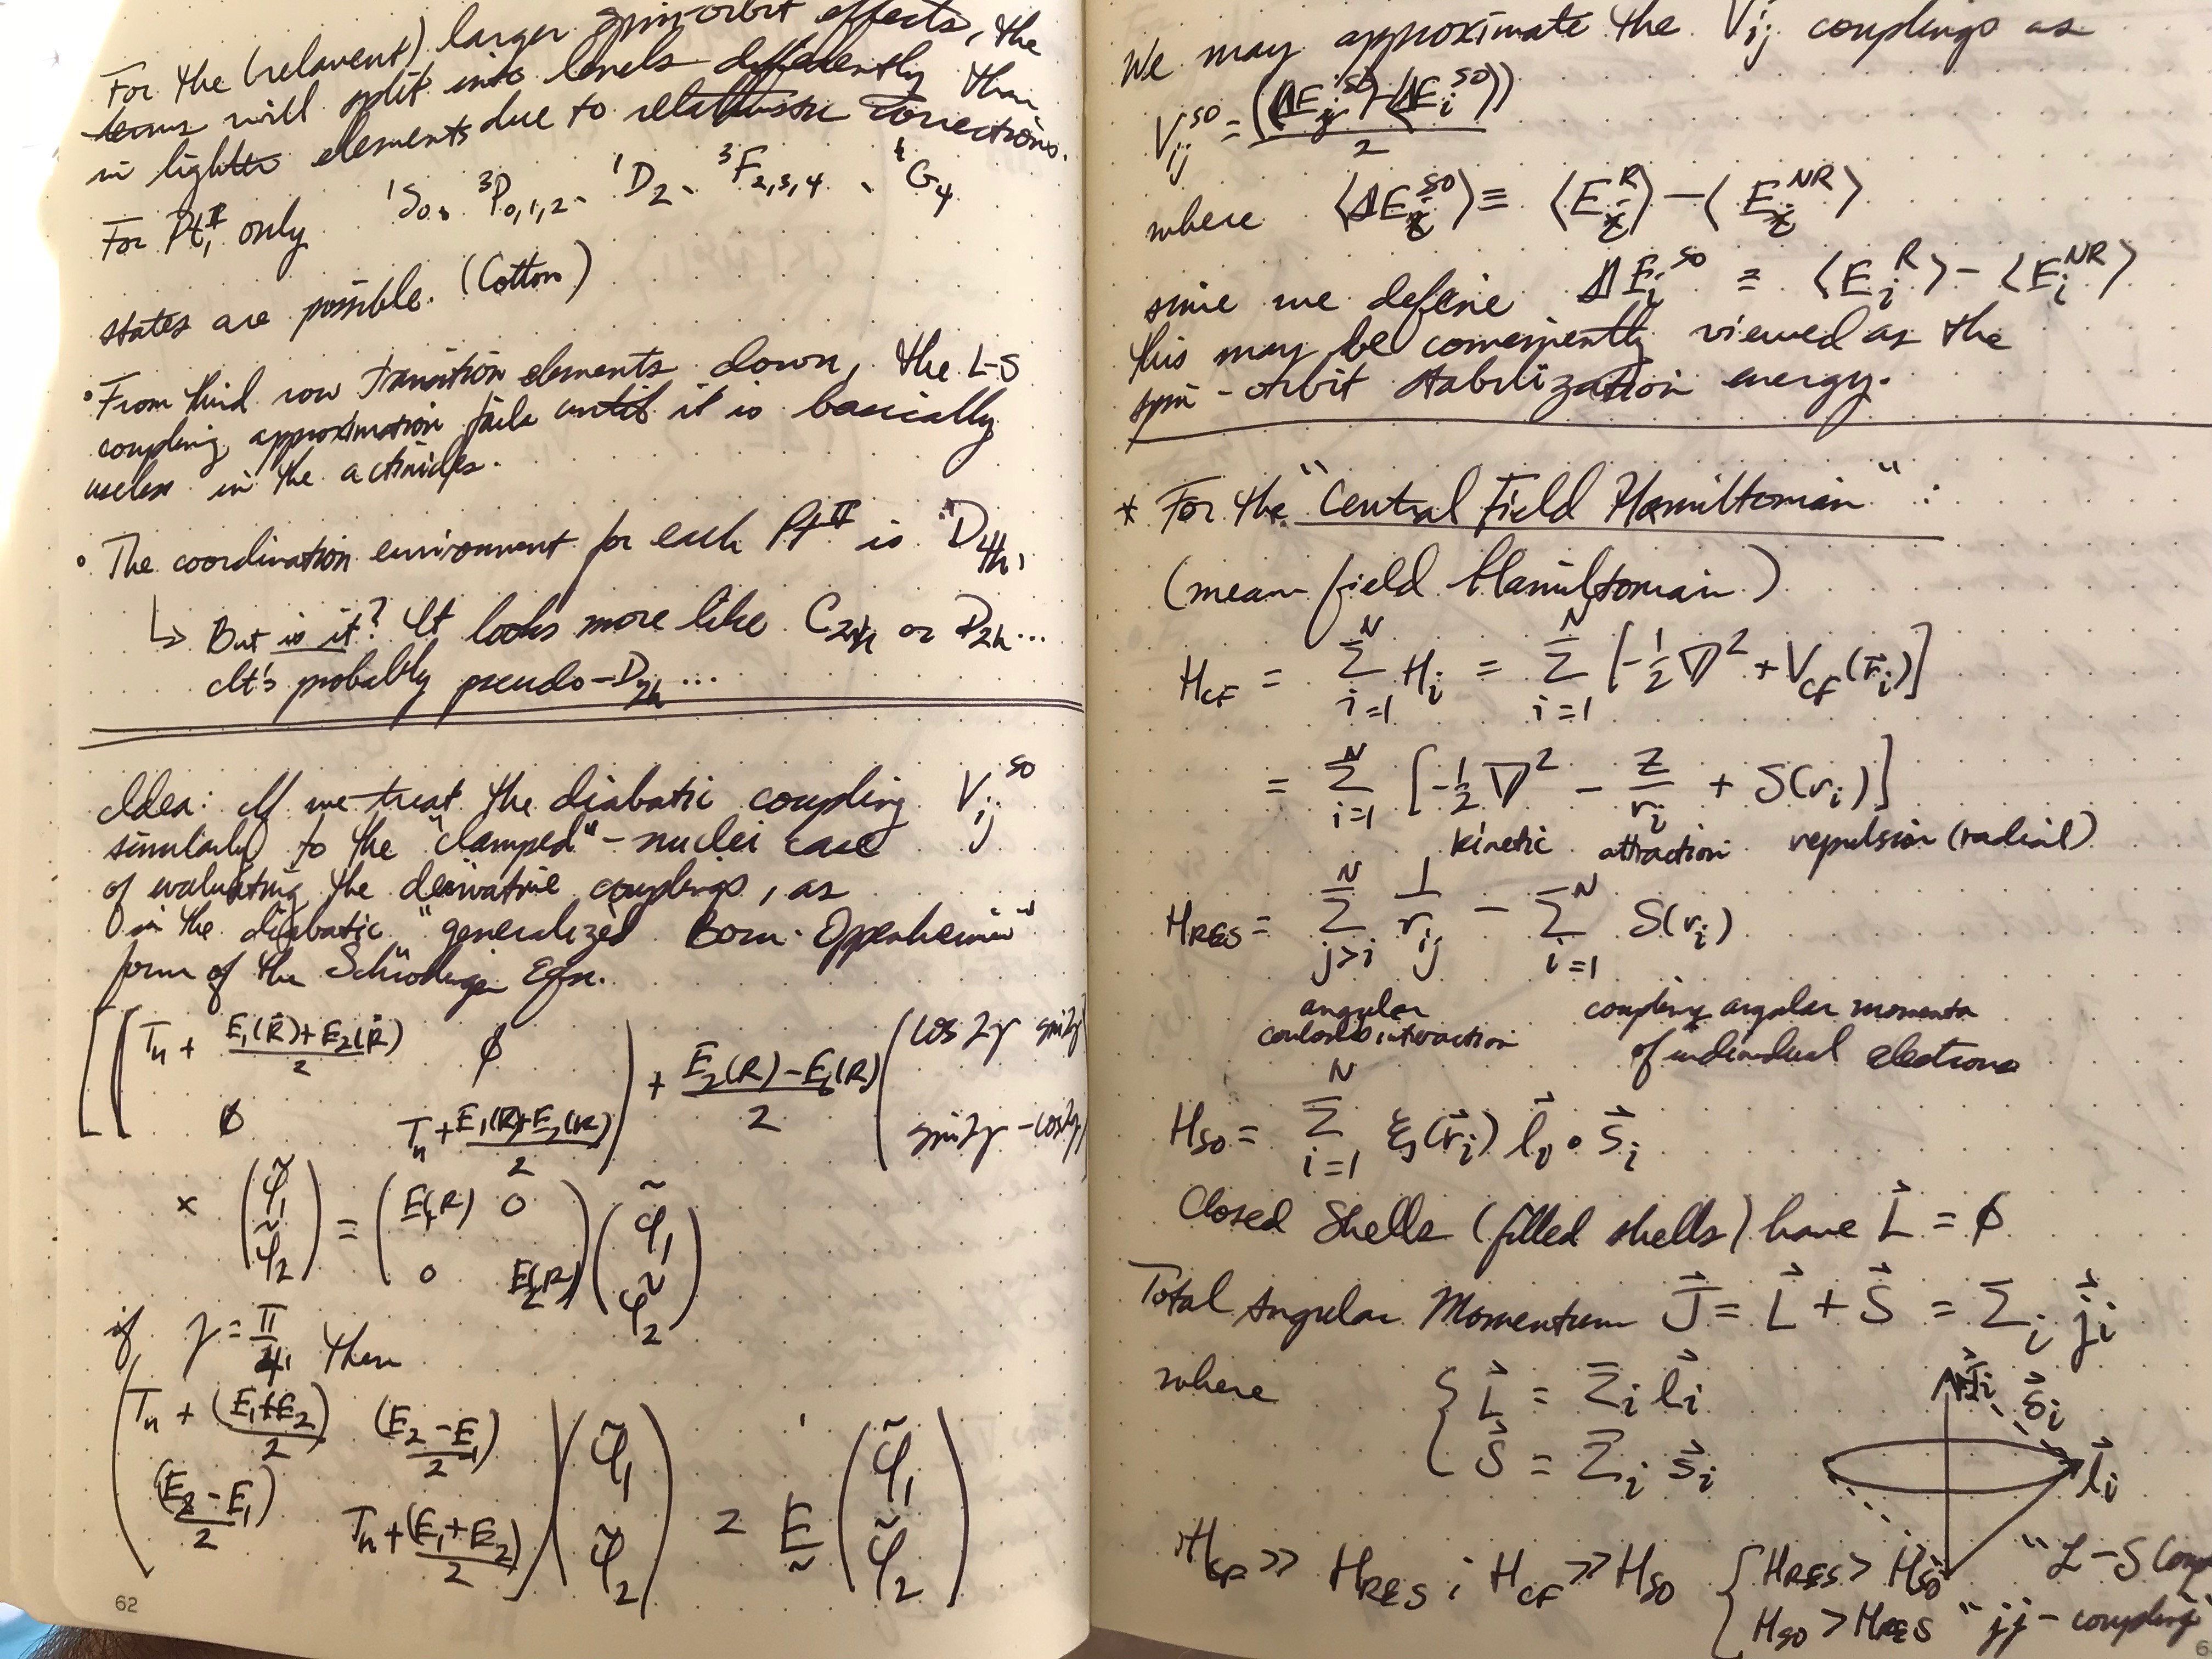 For the (relevant) larger spin orbit effects, the
terms will split into levels differently than
in lighter elements due to relativistic corrections.
For only ¹S₀, ³P₀,₁,₂, ¹D₂, ³F₂,₃,₄, ¹G₄
states are possible. (Cotton)
• From third row Transition elements down, the L-S
coupling approximation fails until it is basically
useless in the actinides.
• The coordination environment for each is "D4h"
↳ But is it? It looks more like C2h or D2h...
It's probably pseudo-D2h...
Idea: If we treat the diabatic coupling Vij^SO
similarly to the "clamped"-nuclei case
of evaluating the derivative couplings, as
in the diabatic "generalized Born-Oppenheimer"
form of the Schrödinger Eqn.
[(Tn + E1(R)+E2(R)/2 ∅
∅ Tn + E1(R)+E2(R)/2) + E2(R)-E1(R)/2 (cos2γ sin2γ
sin2γ -cos2γ)
× (φ̃1
φ̃2) = (E1(R) 0
0 E2(R)) (φ̃1
φ̃2)
if γ = π/4 then
(Tn + (E1+E2)/2 (E2-E1)/2
(E2-E1)/2 Tn + (E1+E2)/2) (φ̃1
φ̃2) = E (φ̃1
φ̃2)
62
We may approximate the Vij couplings as
where
since we define ΔEi^SO = ⟨Ei^R⟩ - ⟨Ei^NR⟩
this may be conveniently viewed as the
spin-orbit stabilization energy.
* For the "Central Field Hamiltonian":
(mean field Hamiltonian)
Hcf = Σ(i=1)^N Hi = Σ(i=1)^N [-1/2 ∇² + Vcf(ri)]
= Σ(i=1)^N [-1/2 ∇² - Z/ri + S(ri)]
kinetic attraction repulsion (radial)
HRES = Σ(j>i)^N 1/rij - Σ(i=1)^N S(ri)
angular
coulomb interaction
HSO = Σ(i=1)^N ξ(ri) l⃗i · s⃗i
coupling angular momenta
of individual electrons
Closed Shells (filled shells) have L⃗ = ∅
Total Angular Momentum J⃗ = L⃗ + S⃗ = Σi j⃗i
where
{ L⃗ = Σi l⃗i
S⃗ = Σi s⃗i
s⃗i
l⃗i
Hcf >> HRES ; Hcf >> HSO { HRES > HSO "L-S
HSO > HRES "jj-coupling"